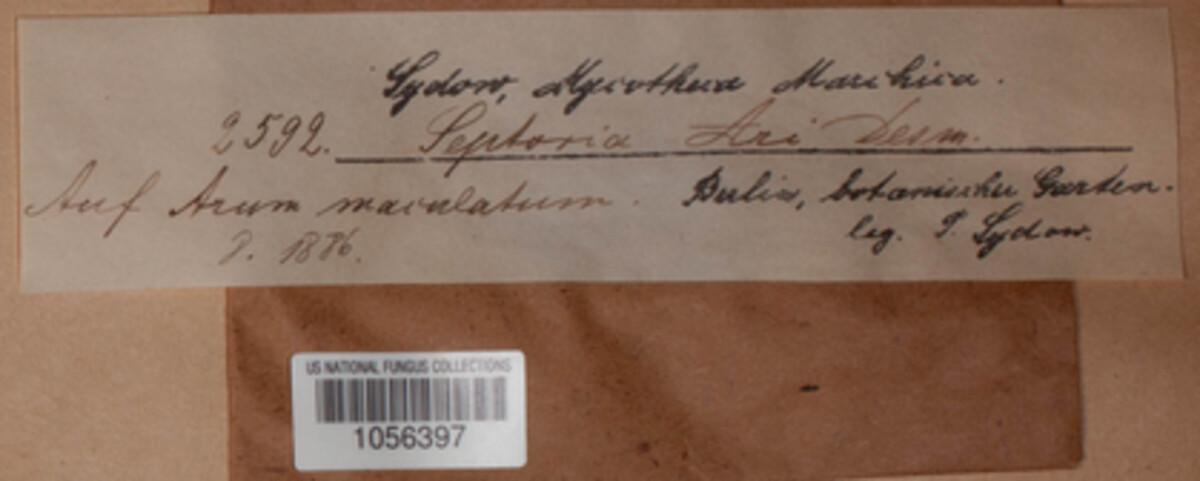 Sydow, Mycotheca Marchica.
2592. Septoria Ari Desm.
Auf Arum maculatum. Berlin, botanischer Garten.
8. 1886. leg. P. Sydow.
US NATIONAL FUNGUS COLLECTIONS
1056397